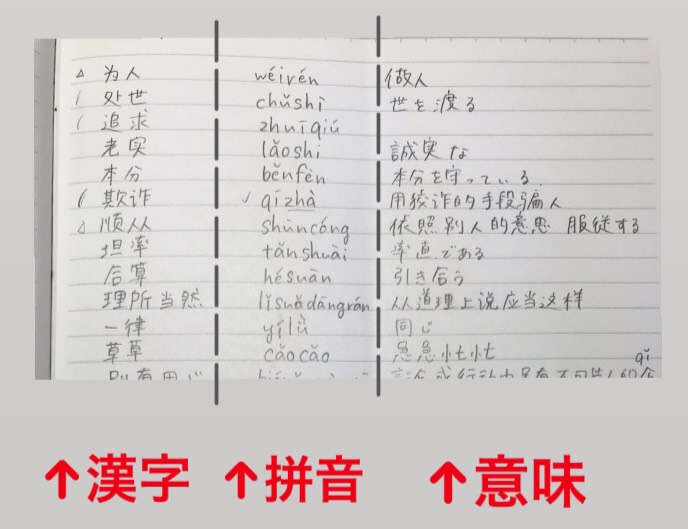 △ 为人 wéirén 做人
/ 处世 chǔshì 世を渡る
/ 追求 zhuīqiú
老实 lǎoshi 誠実な
本分 běnfèn 本分を守っている
// 欺诈 ✓ qīzhà 用狡诈的手段骗人
△ 顺从 shùncóng 依照别人的意思 服従する
坦率 tǎnshuài 率直である
合算 hésuàn 引き合う
理所当然 lǐsuǒdāngrán 从道理上说应当这样
一律 yílǜ 同じ
草草 cǎocǎo 急急忙忙
别有用心 qǐ
↑漢字 ↑拼音 ↑意味